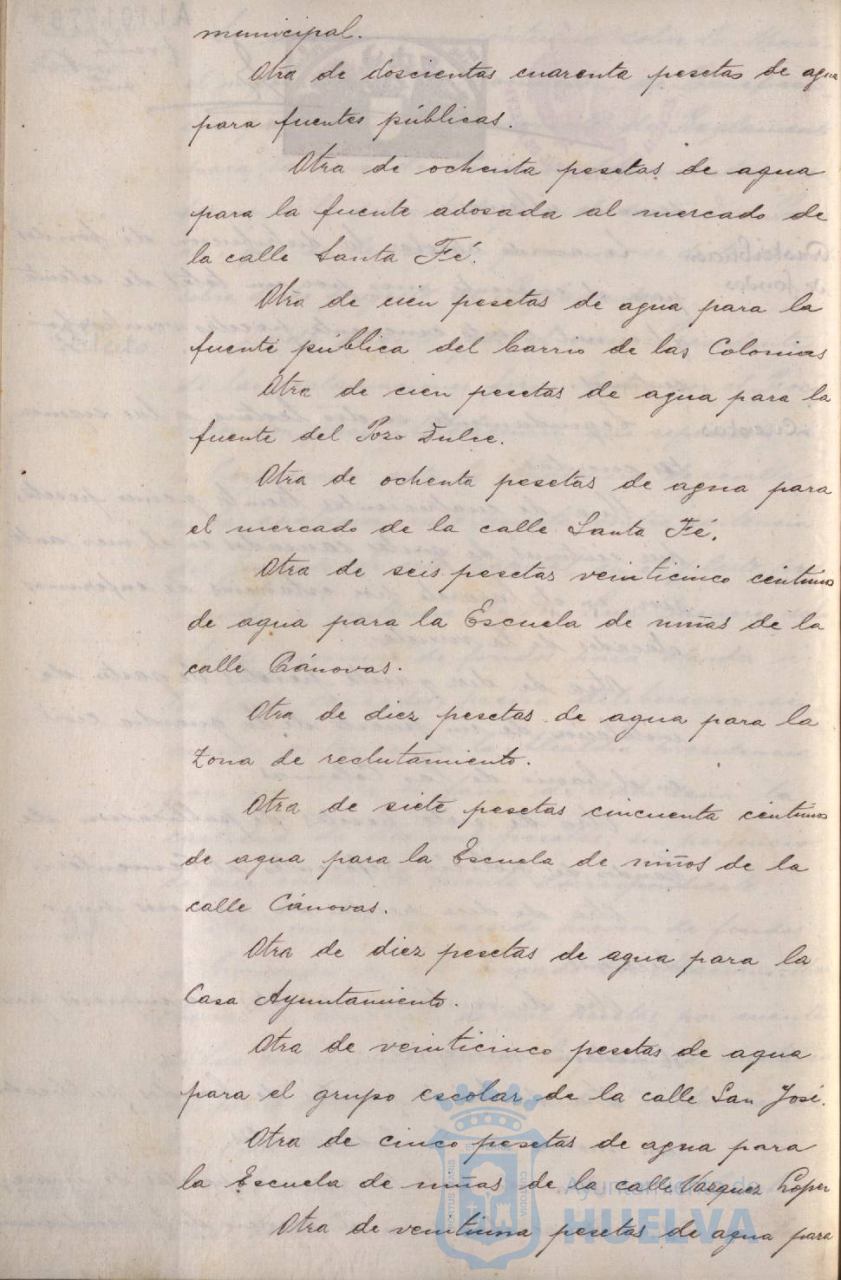 municipal.
Otra de doscientas cuarenta pesetas de agua
para fuentes públicas.
Otra de ochenta pesetas de agua
para la fuente adosada al mercado de
la calle Santa Fé.
Otra de cien pesetas de agua para la
fuente pública del barrio de las Colonias
Otra de cien pesetas de agua para la
fuente del Pozo Dulce.
Otra de ochenta pesetas de agua para
el mercado de la calle Santa Fé.
Otra de seis pesetas veinticinco céntimos
de agua para la Escuela de niñas de la
calle Cánovas.
Otra de diez pesetas de agua para la
Zona de reclutamiento.
Otra de siete pesetas cincuenta céntimos
de agua para la Escuela de niños de la
calle Cánovas.
Otra de diez pesetas de agua para la
Casa Ayuntamiento.
Otra de veinticinco pesetas de agua
para el grupo escolar de la calle San José.
Otra de cinco pesetas de agua para
la Escuela de niñas de la calle Vazquez Lopez
Otra de veintiuna pesetas de agua para
Ayuntamiento de
HUELVA